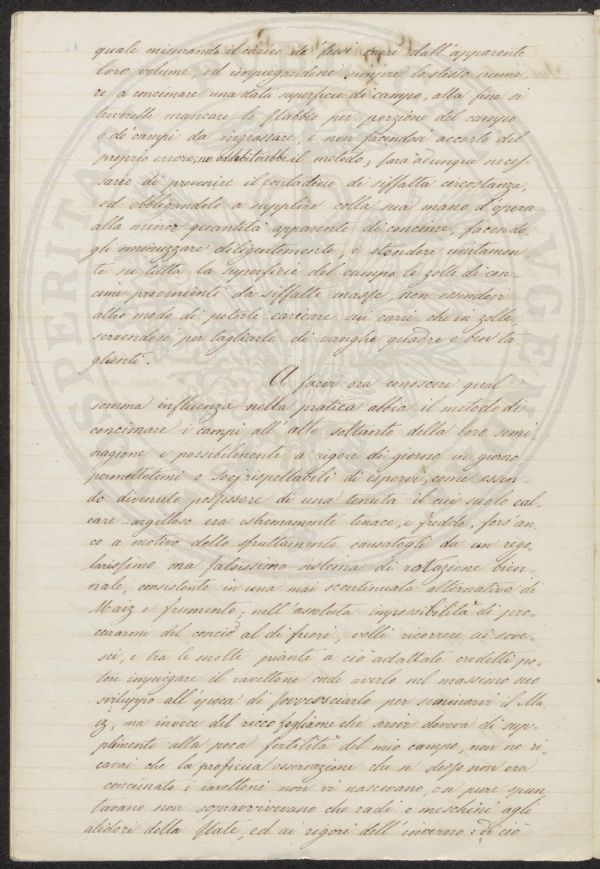 quale misurando il carico de' suoi carri dall'apparente
loro volume, ed impiegandone sempre lo stesso nume-
ro a concimare una data superficie di campo, alla fine si
troverebbe mancare lo stabbio per porzione del campo
o de' campi da ingrassare, e non facendosi accorto del
proprio errore, ne addebiterebbe il metodo; sarà adunque neces-
sario di prevenire il contadino di siffatta circostanza,
ed obbligandolo a supplire colla sua mano d'opera
alla minor quantità apparente di concime, facendo
gli sminuzzare diligentemente, e stendere unitamen-
te su tutta la superficie del campo le zolle di con-
cime provenienti da siffatte masse, non essendovi
altro modo di poterle caricare sui carri che in zolle,
servendosi per tagliarle di vanghe quadre e ben ta-
glienti.
A farvi ora conoscere qual
somma influenza nella pratica abbia il metodo di
concimare i campi all'atto soltanto della loro semi-
nagione e possibilmente a rigore di giorno in giorno
permettetemi o Socj rispettabili di esporvi, come essen-
do divenuto possessore di una tenuta il cui suolo cal-
care-argilloso era estremamente tenace, e freddo, fors'an-
co a motivo dello sfruttamento causatogli da un rego-
larissimo ma falsissimo sistema di rotazione bien-
nale, consistente in una mai scontinuata alternativa di
Maiz e frumento; nell'assoluta impossibilità di pro-
curarmi del concio al di fuori, volli ricorrere ai sove-
sci, e tra le molte piante a ciò adattate credetti po-
ter impiegare il ravettone onde averlo nel massimo suo
sviluppo all'epoca di sovesciarlo per seminarvi il Ma-
iz, ma invece del ricco fogliame che servir doveva di sup-
plimento alla poca fertilità del mio campo, non ne ri-
cavai che la proficua osservazione che se desso non era
concimato i ravettoni non vi nascevano, o se pure spun-
tavano non sopravvivevano che radi e meschini agli
alidori della State, ed ai rigori dell'inverno: di ciò